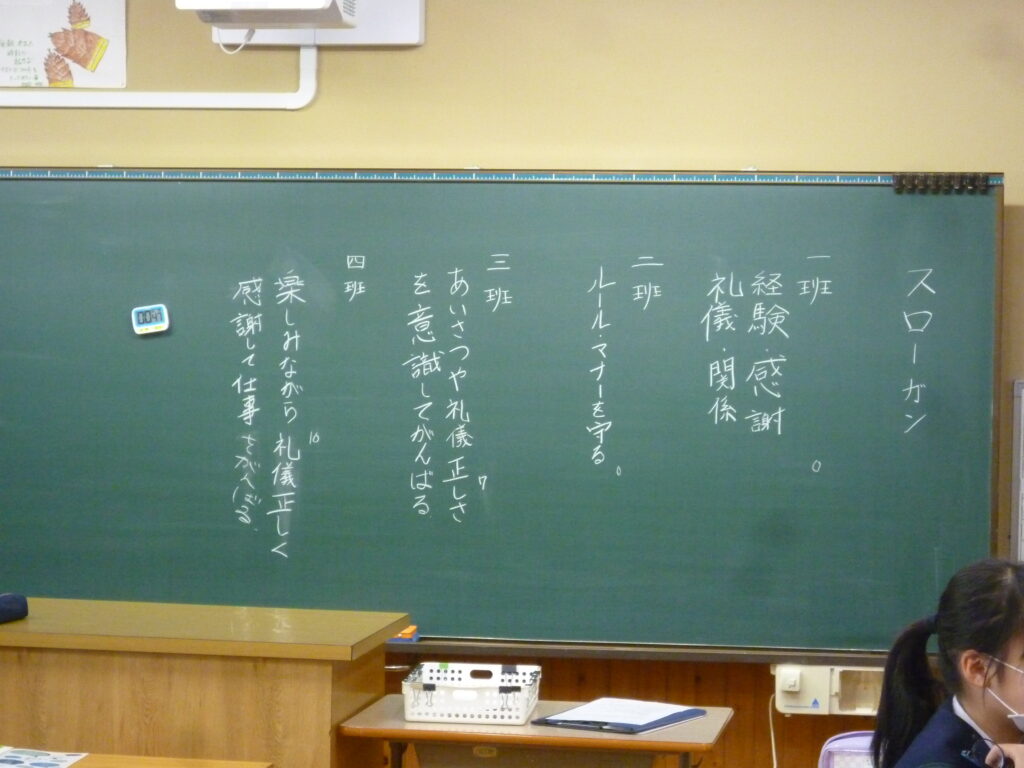 スローガン
一班
経験・感謝
礼儀・関係
0
二班
ルール・マナーを守る
0
三班
あいさつや礼儀正しさ
を意識してがんばる
7
四班
楽しみながら礼儀正しく
感謝して仕事をがんばる
16